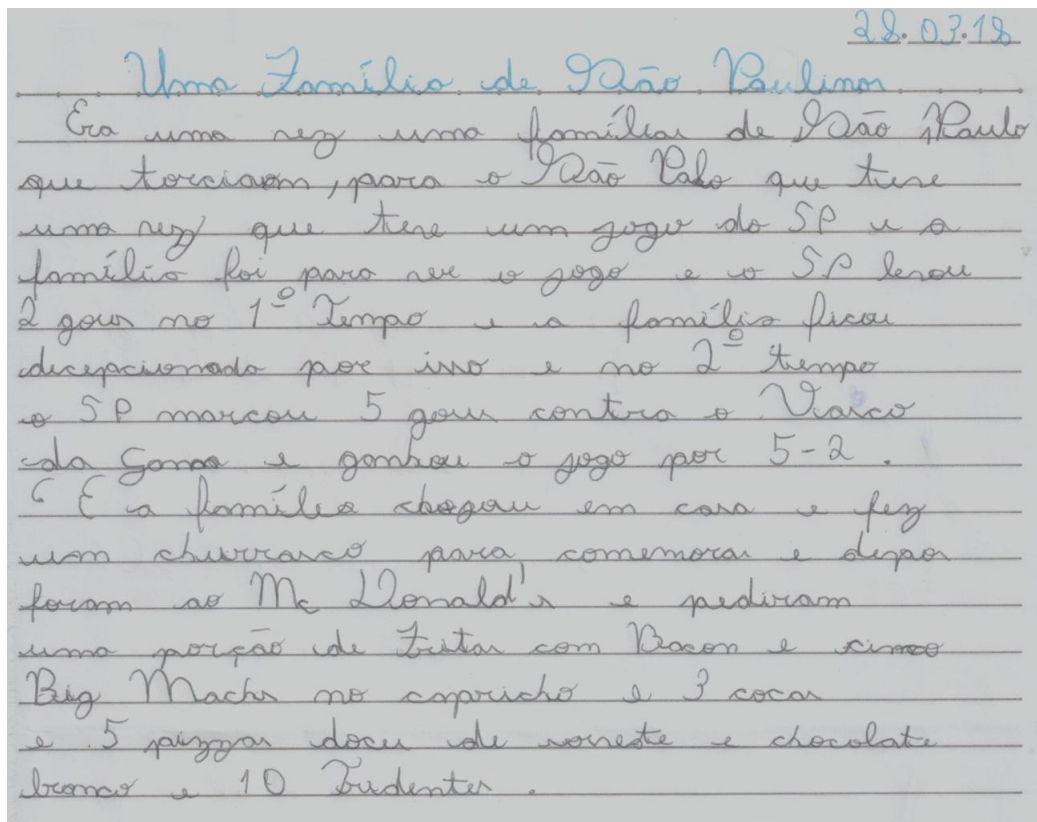 28.03.18
Uma Família de São Paulinos
Era uma vez uma famílias de São Paulo
que torciam, para o São Palo que teve
uma vez que teve um jogo do SP e a
família foi para ver o jogo e o SP levou
2 gous no 1º Tempo e a família ficou
decepcionada por isso e no 2º tempo
o SP marcou 5 gous contra o Vasco
da Gama e ganhou o jogo por 5-2.
E a família chegou em casa e fez
um churrasco para comemorar e depos
foram ao Mc Donald's e pediram
uma porção de Fritas com Bacon e cinco
Big Machs no capricho e 3 cocas
e 5 pizzas doces de sorveste e chocolate
branco e 10 Tridentes.